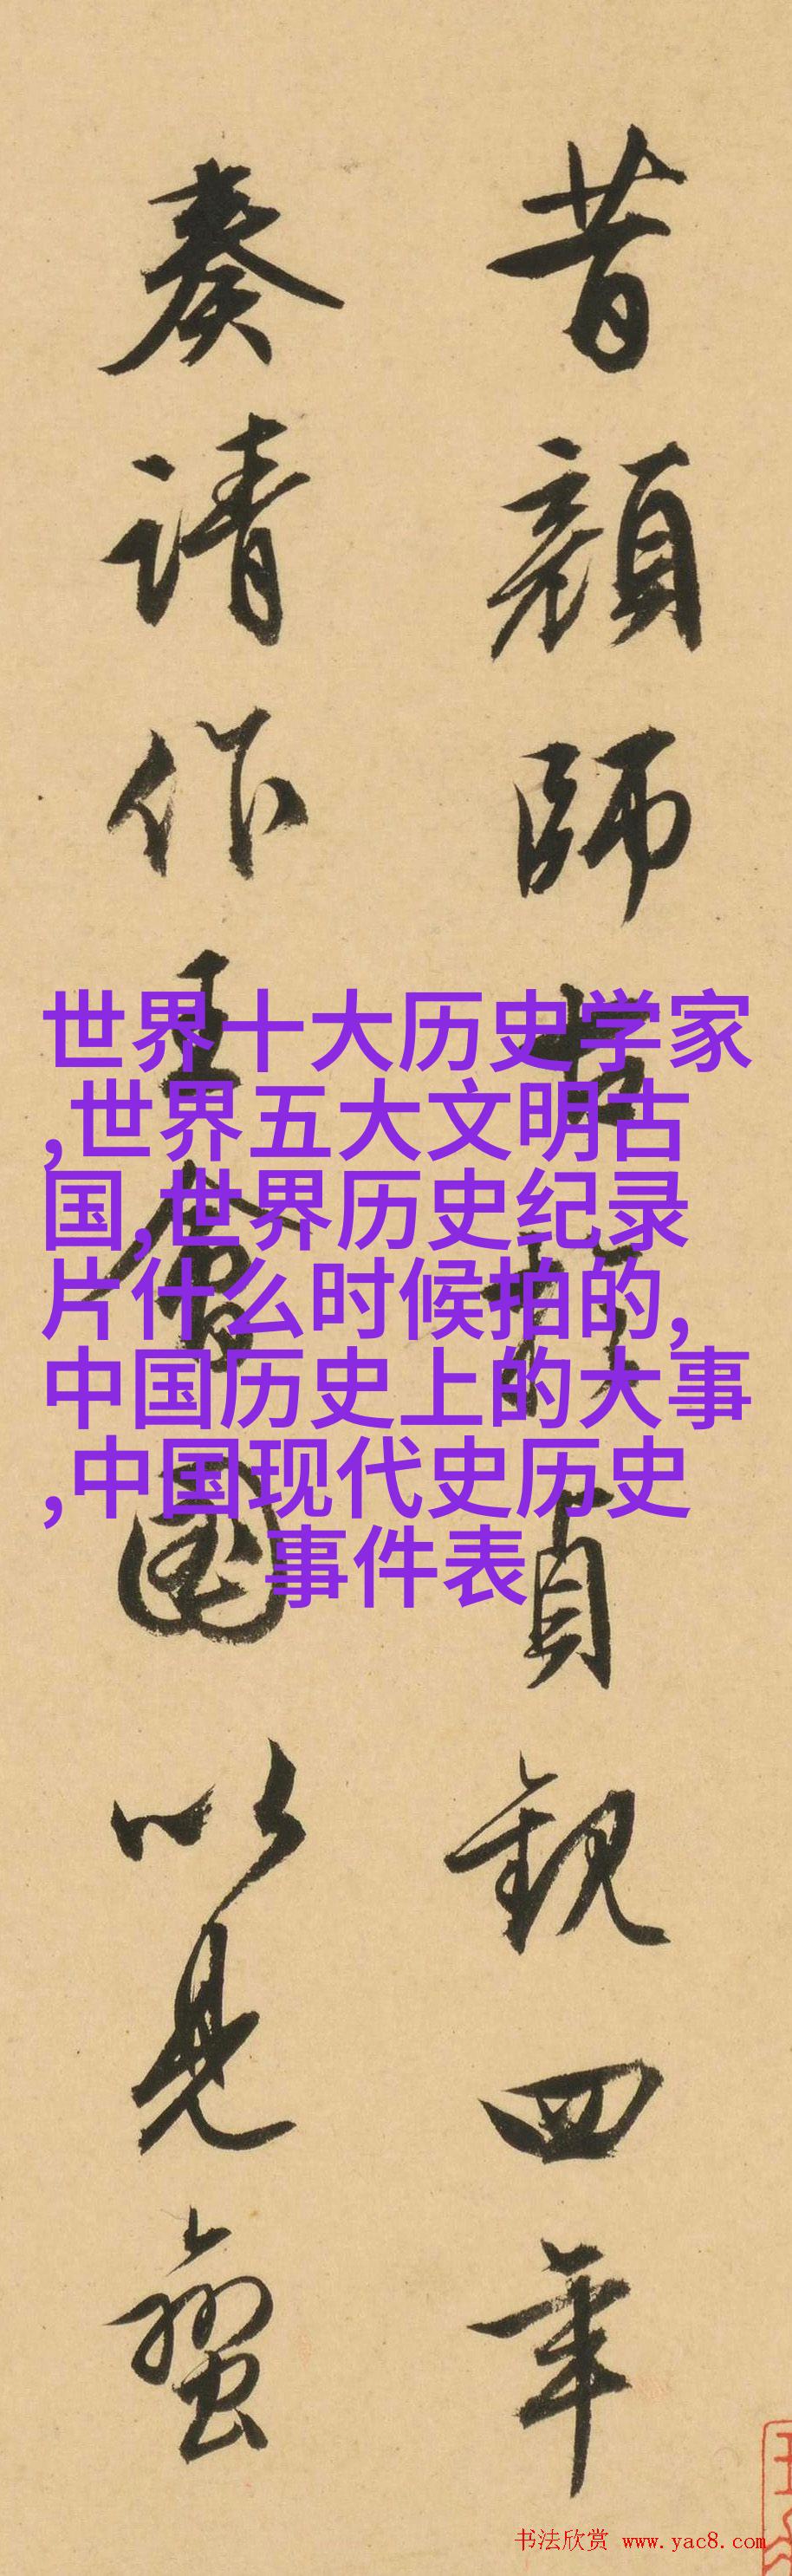 昔顏師古於貞觀四年
奏請作王會圖以見蠻
世界十大历史学家
,世界五大文明古
国,世界历史纪录
片什么时候拍的,
中国历史上的大事
,中国现代史历史
事件表
书法欣赏 www.yac8.com